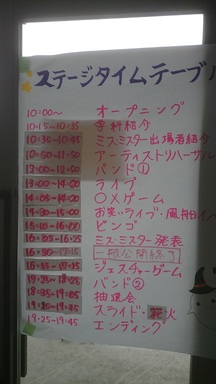 ステージタイムテーブル
10:00〜 オープニング
10:15-10:35 学科紹介
10:35-10:45 ミス・ミスター出場者紹介
10:50-11:50 アーティストリハーサル
12:00-12:50 バンド①
13:00-14:00 ライブ
14:05- ○×ゲーム
14:30-15:00 お笑いライブ・風船
15:10-16:00 ビンゴ
16:05-16:25 ミス・ミスター発表
16:30- 一般公開終了
ジェスチャーゲーム
バンド②
18:35-19:05 抽選会
スライド・花火
19:25-19:45 エンディング